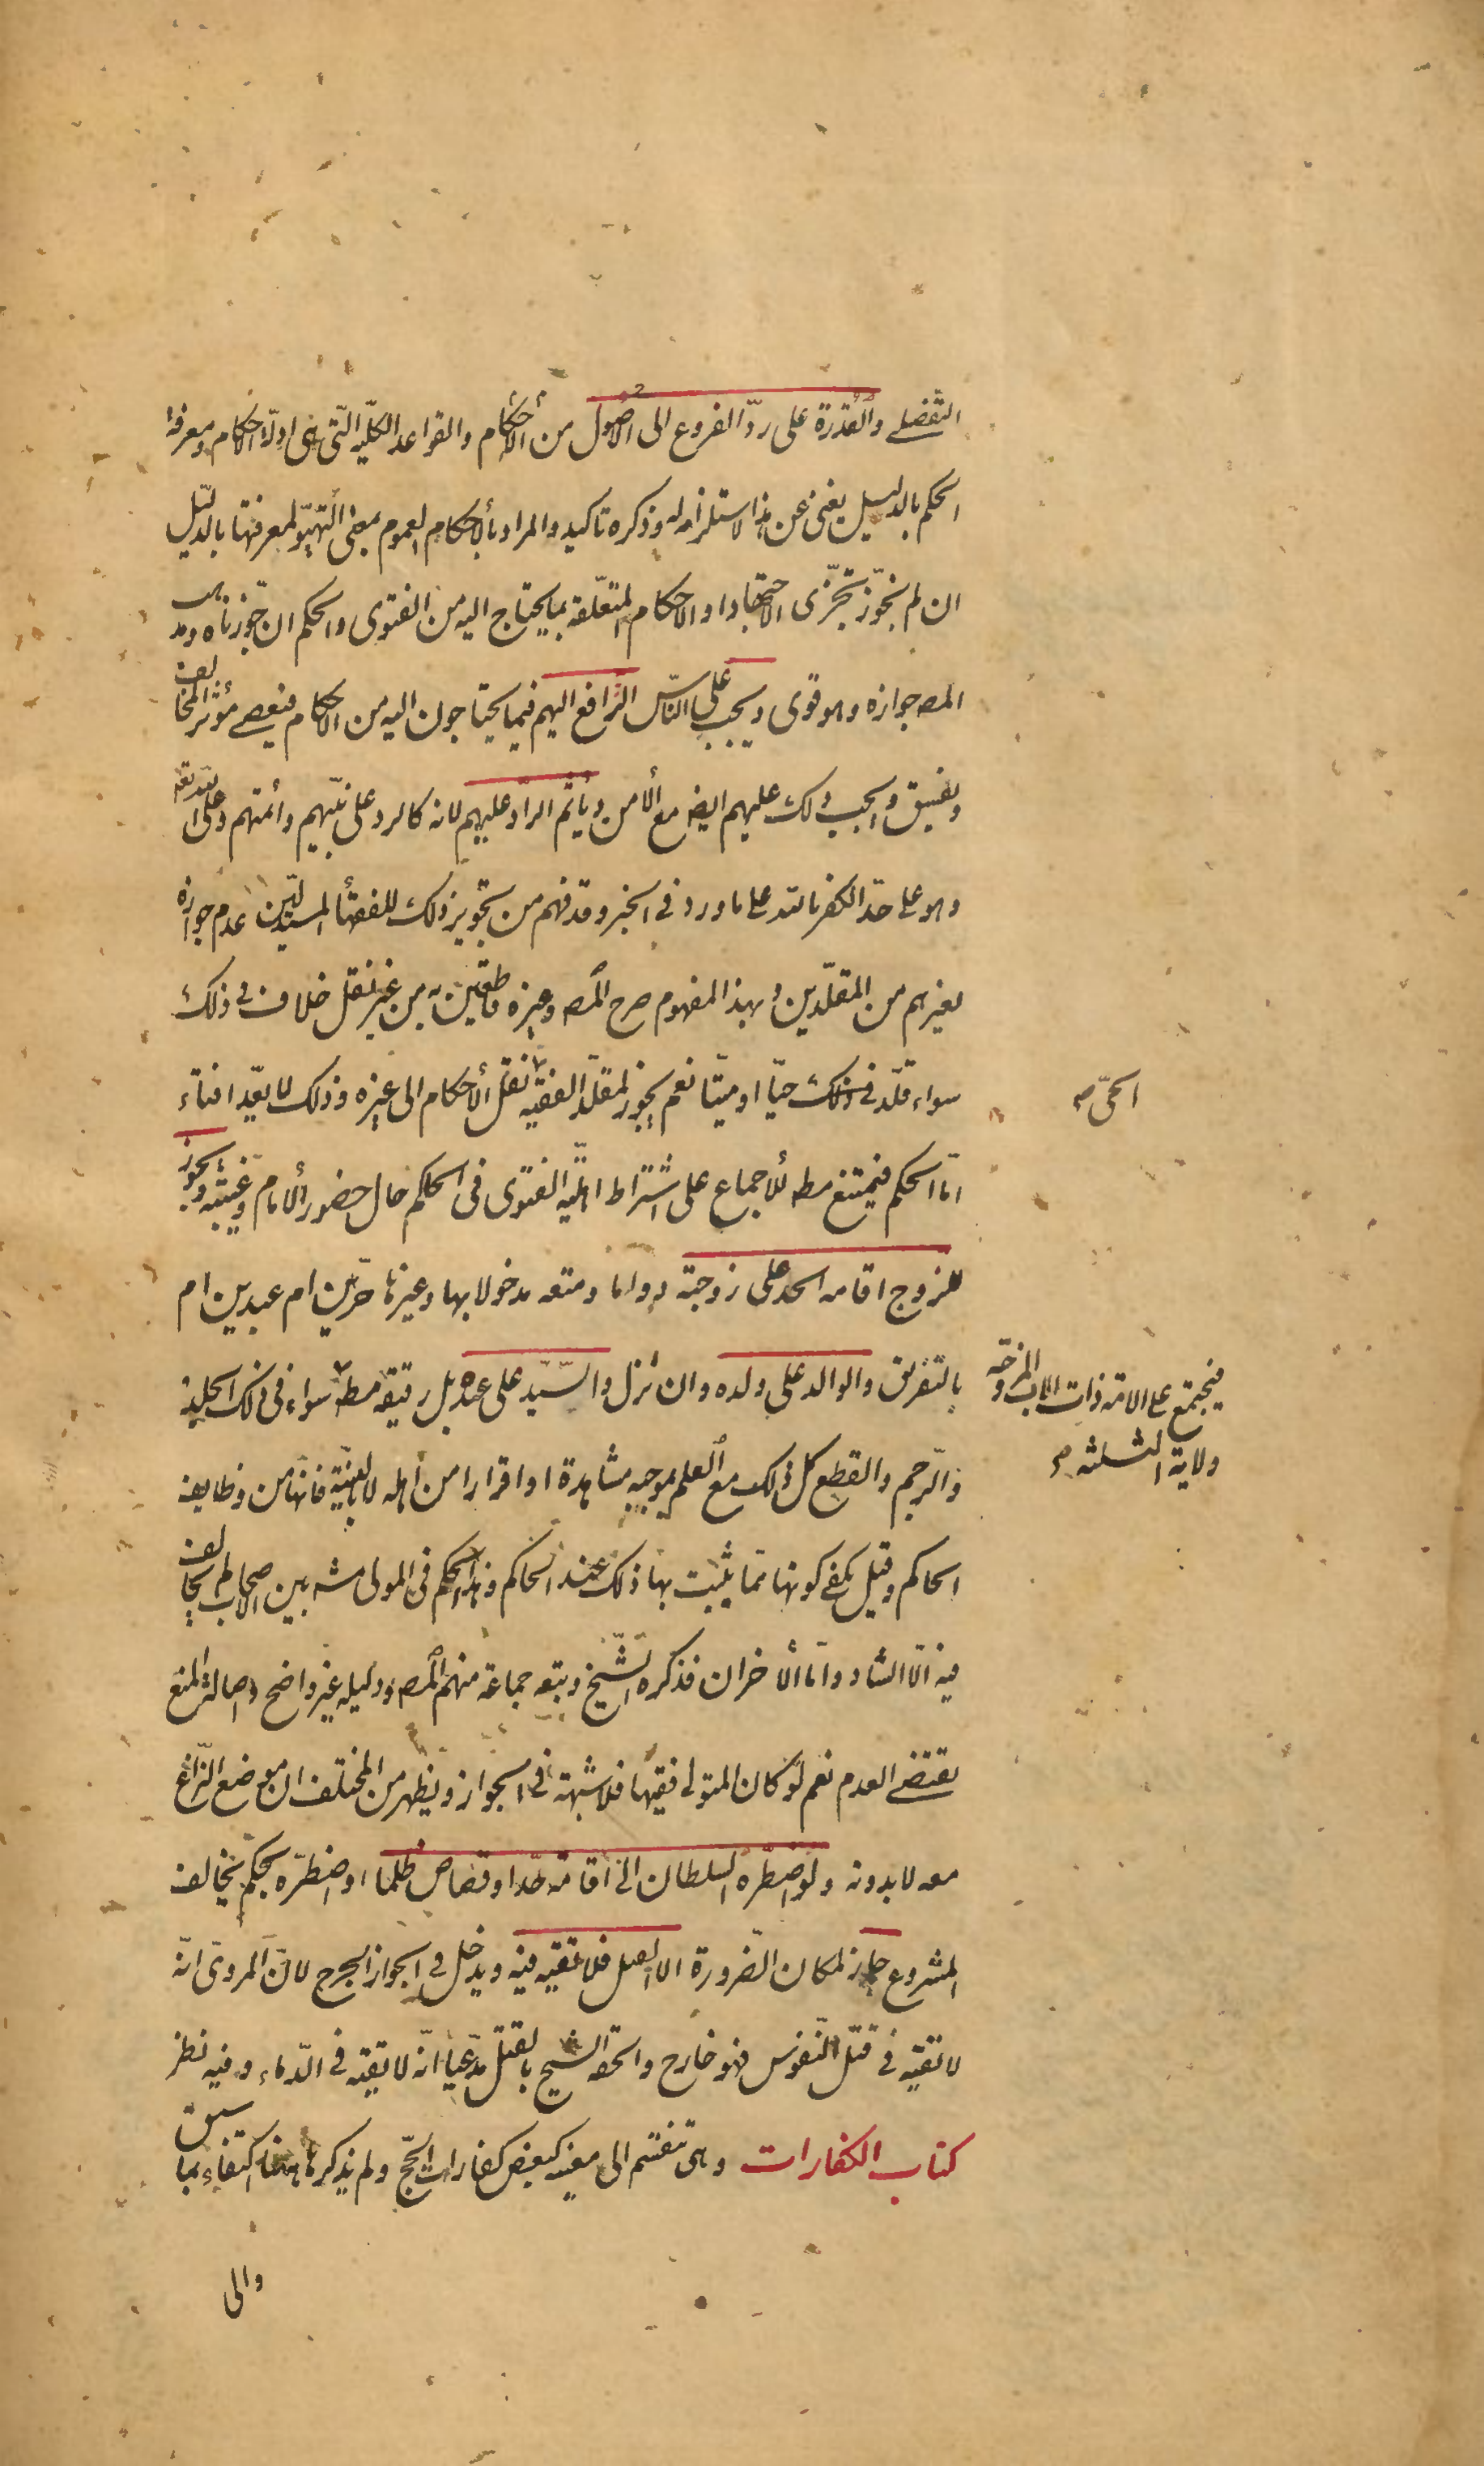 التفصيلي والقدرة على ردّ الفروع الى الأصول من الأحكام والقواعد الكليّة التي هي ادلّة الاحكام ومعرفة
الحكم بالدليل يغني عن هذا لاستلزامه له وذكره تاكيد والمراد بالأحكام العموم بمعنى التهيّؤ لمعرفتها بالدليل
ان لم نجوّز تجزّى الاجتهاد او الاحكام المتعلّقة بما يحتاج اليه من الفتوى والحكم ان جوّزناه ومذهب
المصـ جوازه وهو قوى ويجب على النّاس الترافع اليهم فيما يحتاجون اليه من الاحكام فيعصى مؤثر المخالف
ويفسق ويجب ذلك عليهم ايضـ مع الأمن ويأثم الرادّ عليهم لانه كالرد على نبيّهم وأئمتهم وعلى الله تعـ
وهو على حدّ الكفر بالله على ما ورد في الخبر وقد فهم من تجويز ذلك للفقهاء المستدلّين عدم جوازه
لغيرهم من المقلّدين وبهذا المفهوم صرح المصـ وغيره قاطعين به من غير نقل خلاف في ذلك
سواء قلّد في ذلك حيّا او ميّتا نعم يجوز لمقلّد الفقيه نقل الأحكام الى غيره وذلك لا يعدّ افتاء
الحىّ صح
امّا الحكم فيمتنع مطـ للأجماع على اشتراط اهليّة الفتوى في الحاكم حال حضور الأمام وغيبته ويجوز
للزوج اقامة الحد على زوجته دواما ومتعه مدخولا بها وغيرها حرّين ام عبدين ام
بالتفريق والوالد على ولده وان نزل والسّيّد على عبده بل رقيقه مطـ سواء في ذلك الجلد
فيجتمع على الامة ذات الاب المزوّجه
ولاية الثلثة صح
والرّجم والقطع كل ذلك مع العلم بموجبه مشاهدة او اقرارا من اهله لا بالبيّنة فانها من وظايف
الحاكم وقيل يكفى كونها ممّا يثبت بها ذلك عند الحاكم وهذا الحكم في المولى مشـ بين الاصحاب لم يخالف
فيه الّا الشاذ وامّا الأخران فذكره الشّيخ وتبعه جماعة منهم المصـ ودليله غير واضح واصالة المنع
يقتضى العدم نعم لو كان المتولى فقيها فلا شبهة في الجواز ويظهر من المختلف ان موضع النّزاع
معه لا بدونه ولو اضطرّه السلطان الى اقامة حدّ او قصاص ظلما او اضطرّه بحكم يخالف
المشروع جاز لمكان الضّرورة الا القتل فلا تقيه فيه ويدخل في الجواز الجرح لانّ المروىّ انّه
لا تقيّه في قتل النّفوس فهو خارج والحقه الشيخ بالقتل مدّعيا انّه لا تقيّه في الدّماء وفيه نظر
كتاب الكفارات وهي تنقسم الى معيّنه كبعض كفارات الحجّ ولم يذكرها هنا اكتفاء بما سبق
والى